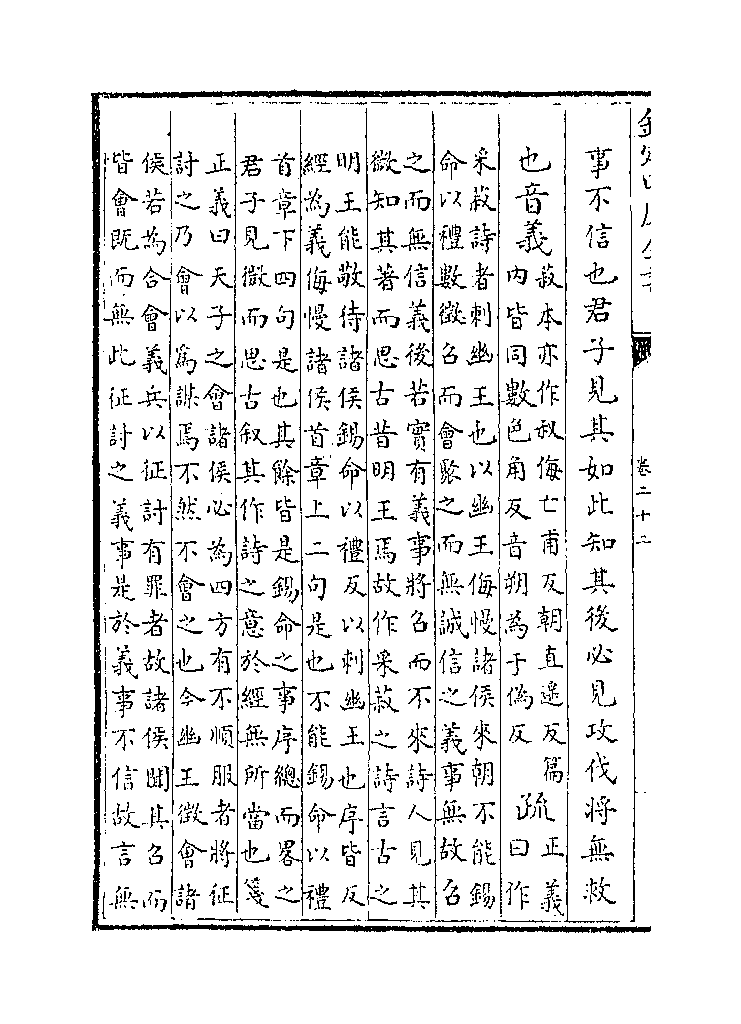 卷二十二
事不信也君子見其如此知其後必見攻伐將無救
也音義
菽本亦作叔侮亡甫反朝直遙反篇
內皆同數色角反音朔為于偽反
疏
正義
曰作
采菽詩者刺幽王也以幽王侮慢諸侯來朝不能錫
命以禮數徵召而會聚之而無誠信之義事無故召
之而無信義後若實有義事將召而不來詩人見其
微知其著而思古昔明王焉故作采菽之詩言古之
明王能敬待諸侯錫命以禮反以刺幽王也序皆反
經為義侮慢諸侯首章上二句是也不能錫命以禮
首章下四句是也其餘皆是錫命之事序總而畧之
君子見微而思古叙其作詩之意於經無所當也箋
正義曰天子之會諸侯必為四方有不順服者將征
討之乃會以為謀焉不然不會之也今幽王徵會諸
侯若為合會義兵以征討有罪者故諸侯聞其召而
皆會既而無此征討之義事是於義事不信故言無